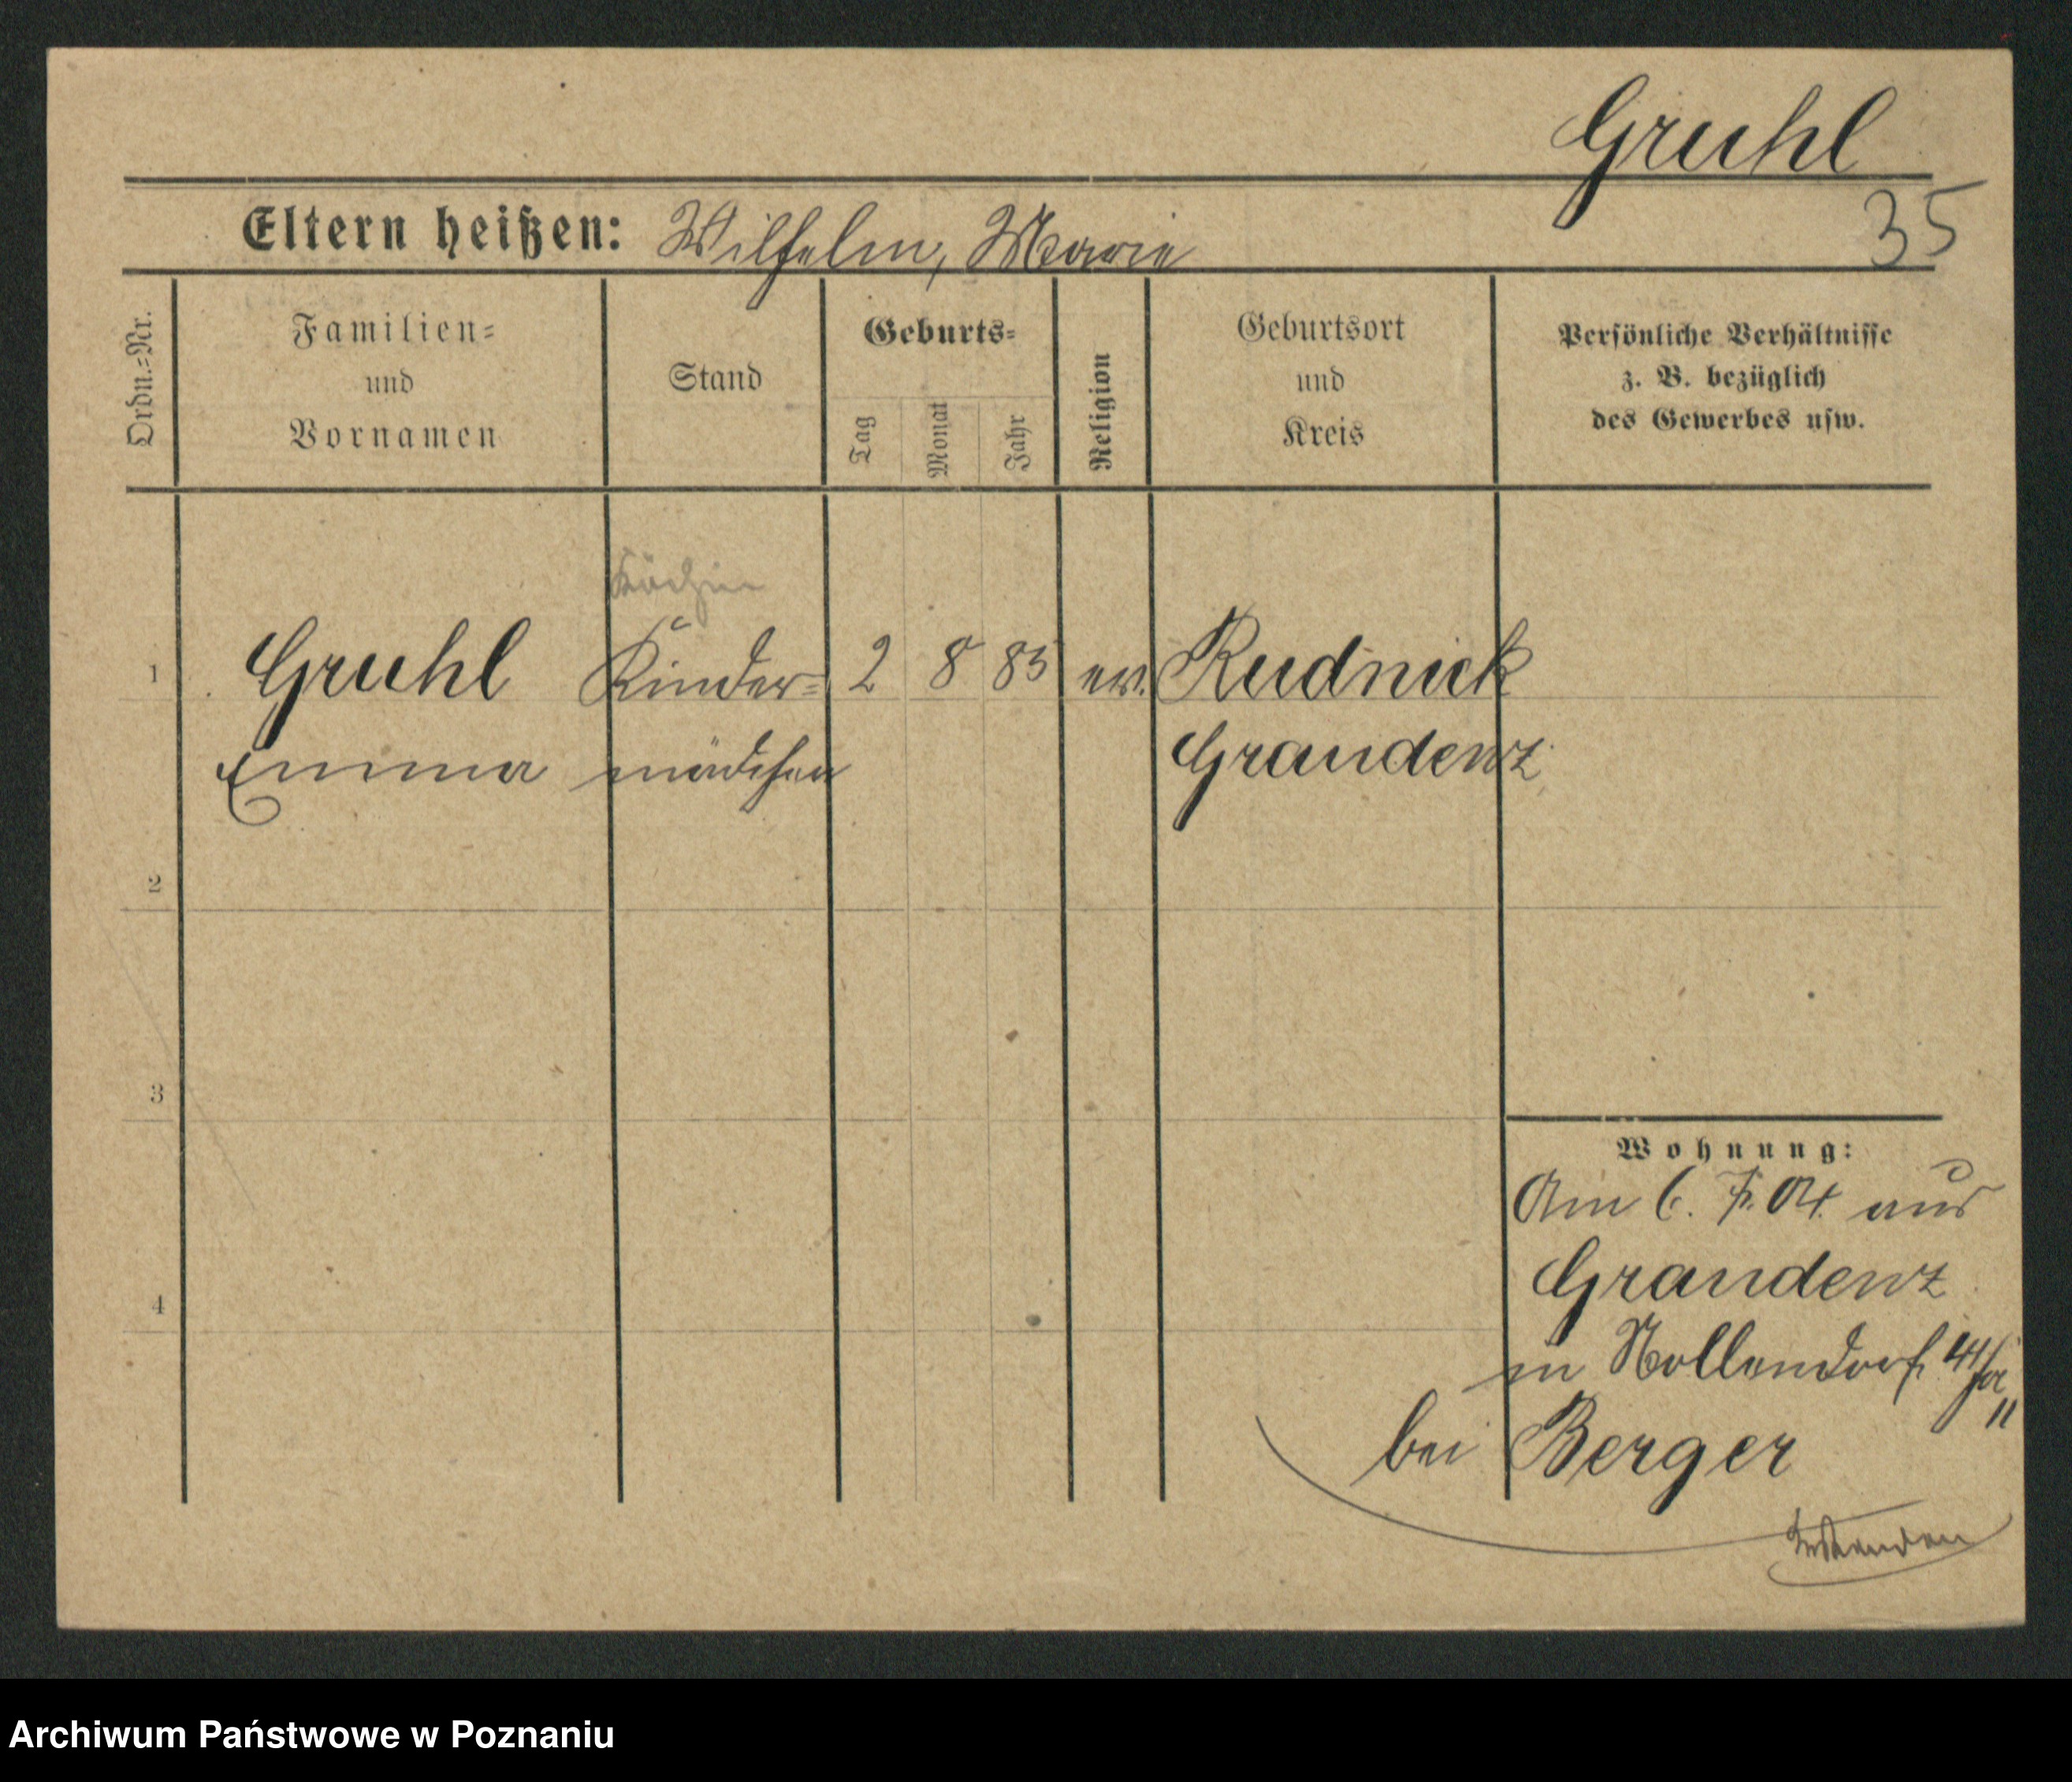 Gruhl
35
Eltern heißen: Wilhelm, Marie
Ordn.=Nr.
Familien=
und
Vornamen
Stand
Geburts=
Tag
Monat
Jahr
Religion
Geburtsort
und
Kreis
Persönliche Verhältnisse
z. B. bezüglich
des Gewerbes usw.
Köchin
1 Gruhl Kinder= 2 8 85 ev. Rudnick
Emma mädchen Graudenz
2
3
4
Wohnung:
Am 6. 7. 04. aus
Graudenz
in Nollendorf. 41
bei Berger
Archiwum Państwowe w Poznaniu